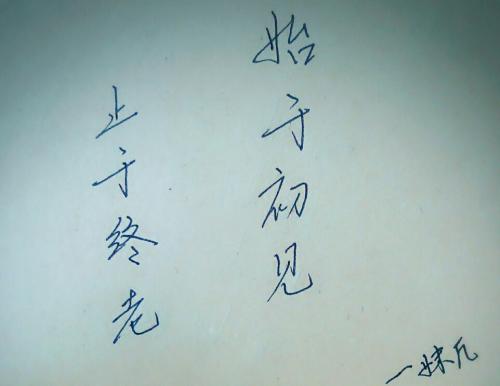 始于初见
止于终老
一妹几